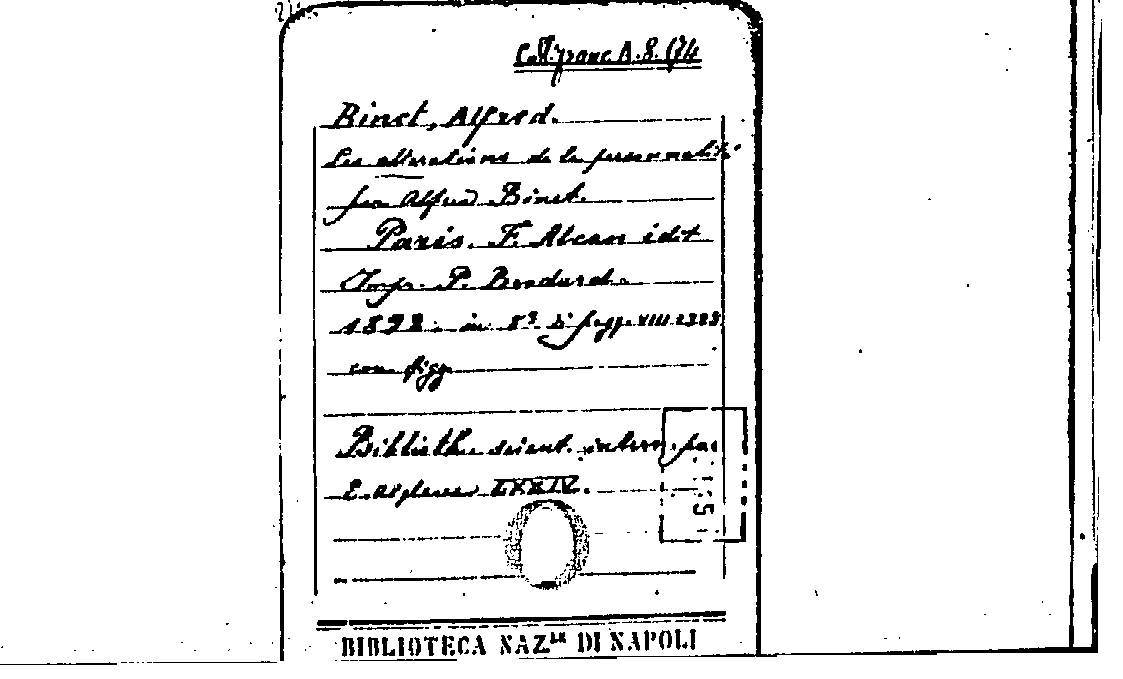 Coll. franc A. 8. (74
Binet, Alfred.
Les altérations de la personnalité
par Alfred Binet.
Paris. F. Alcan edit
Imp. P. Brodard.
1892. in 8º pagg. VIII-323
con figg.
Biblioth. scient. intern. par
E. Alglave LXXIV.
BIBLIOTECA NAZ.LE DI NAPOLI